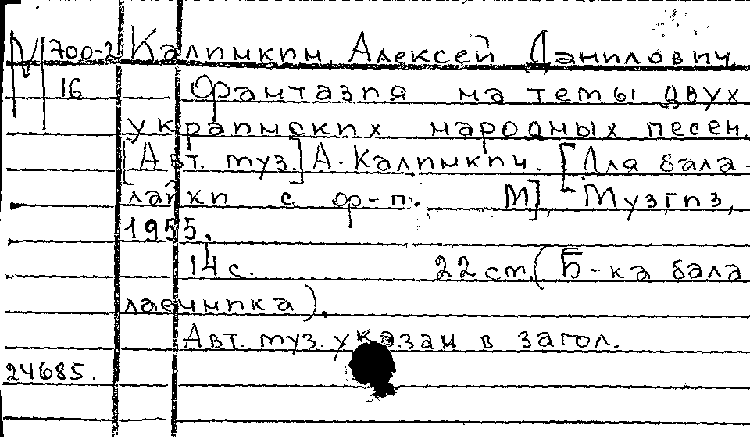 М 700-2 Калинкин, Алексей Данилович.
16 Фантазия на темы двух
украинских народных песен.
[Авт. муз.] А. Калинкин. [Для бала-
лайки с ф-п. М], Музгиз,
1955.
14 с. 22 см. (Б-ка бала
лаечника).
Авт. муз. указан в загол.
24685.